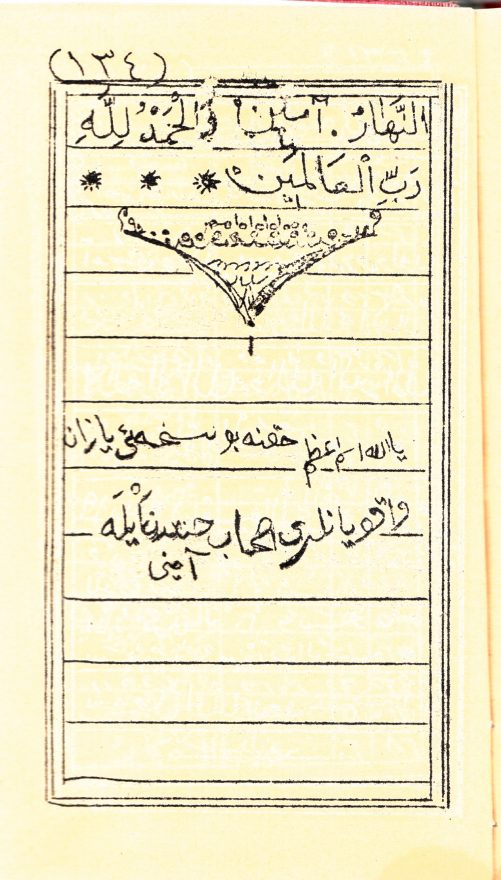 (١٣٤)
النَّهَارُ. آمين وَالْحَمْدُ لِلَّهِ
رَبِّ الْعَالَمِينَ * * *
يا الله اسم اعظم حقنه بو نسخه ئى يازان
واوقويانلرى اصحاب جنتدن ايله
آمين